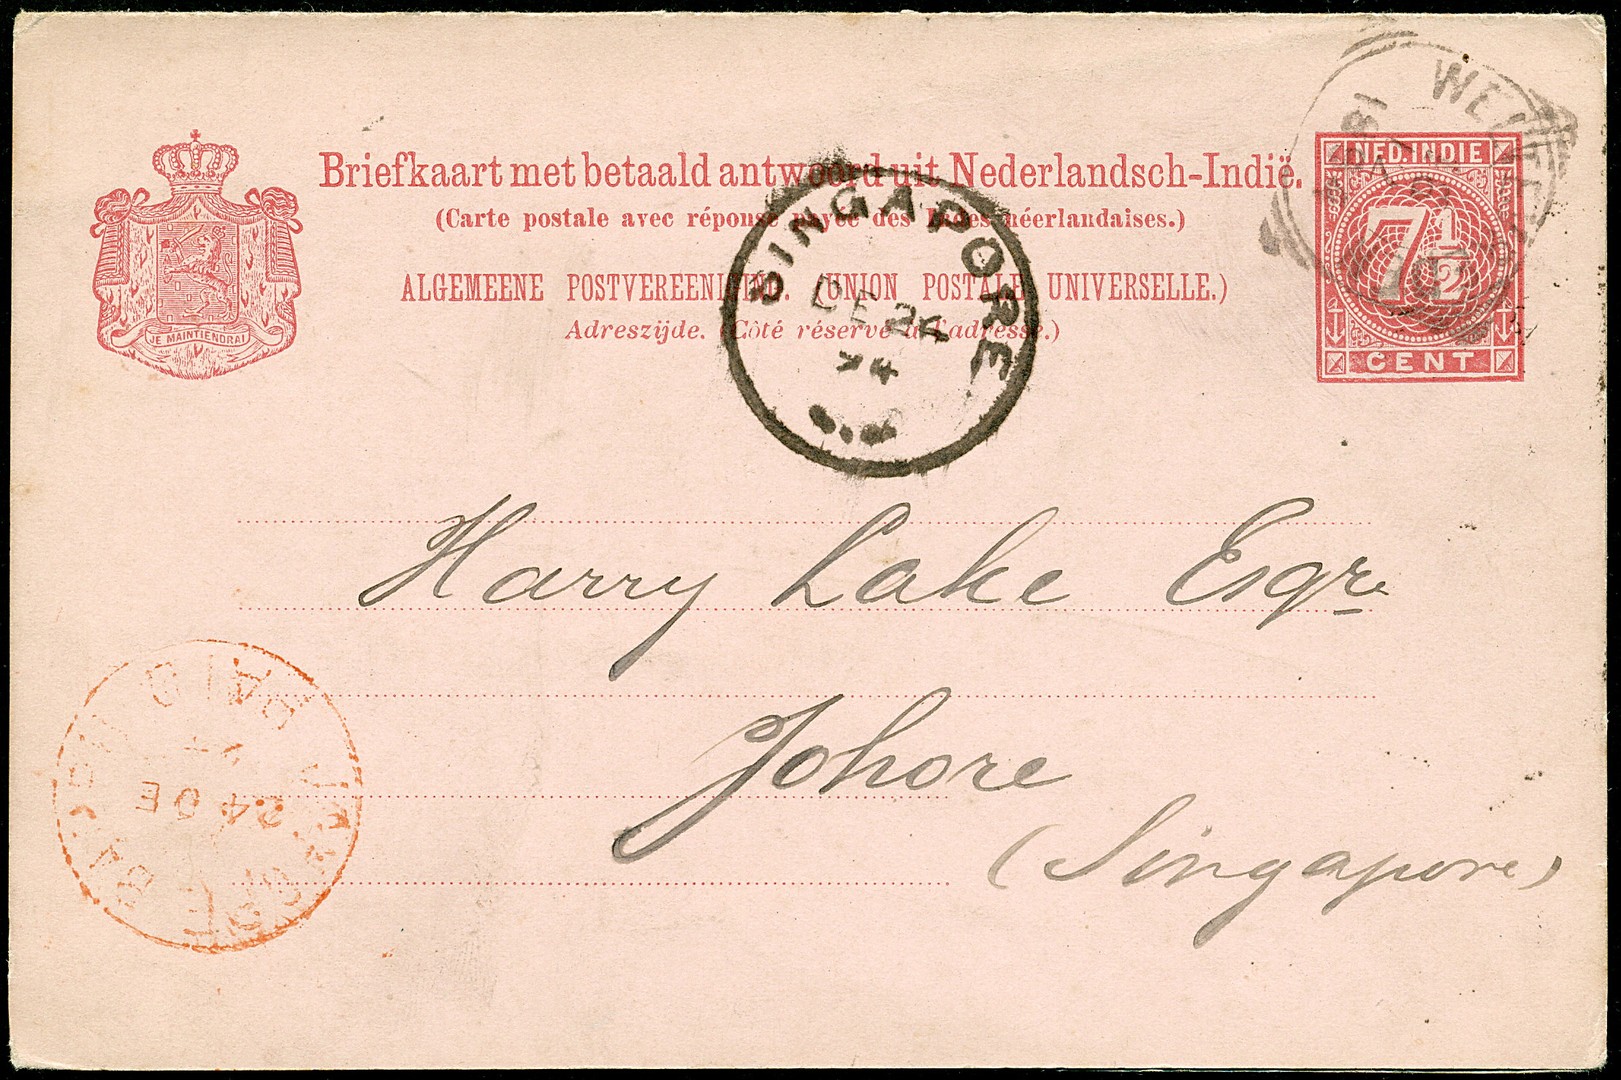 Briefkaart met betaald antwoord uit Nederlandsch-Indië.
(Carte postale avec réponse payée des Indes néerlandaises.)
ALGEMEENE POSTVEREENIGING. (UNION POSTALE UNIVERSELLE.)
Adreszijde. (Côté réservé à l'adresse.)
JE MAINTIENDRAI
NED. INDIE
7½
CENT
SINGAPORE
DE 24
94
Harry Lake Esqre
Johore
(Singapore)
24 DE